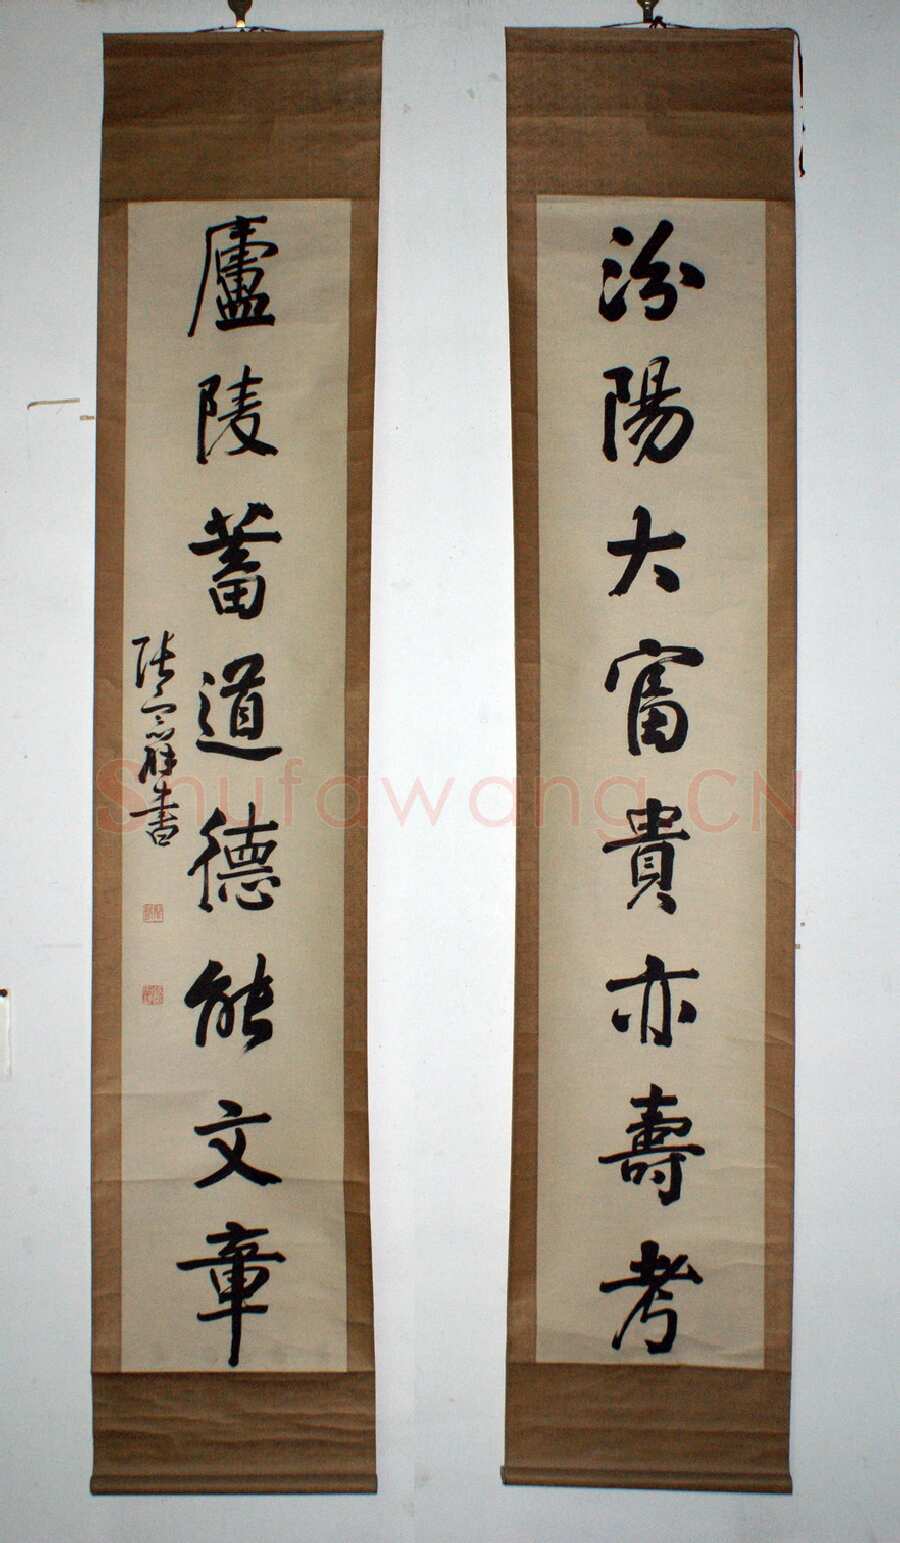 汾陽大富貴亦壽考
廬陵蓄道德能文章
陸宗祥書
Shufawang.CN